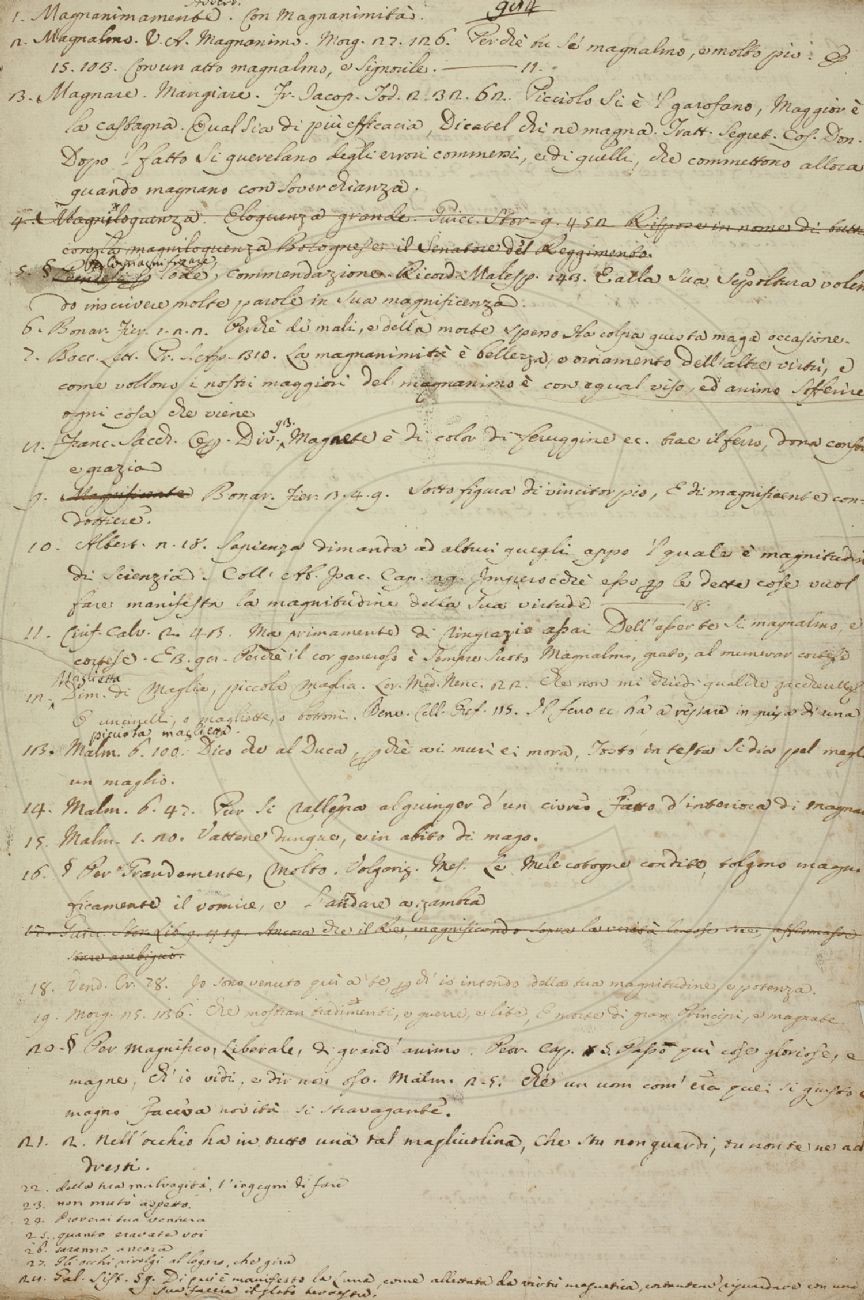 Avverb.
914
1. Magnanimamente. Con Magnanimità.
2. Magnalmo. V. A. Magnanimo. Morg. 27. 126. Perchè tu sé magnalmo, e molto pio: E
15. 103. Con un atto magnalmo, e signorile. 11.
3. Magnare. Mangiare. Fr. Iacop. Tod. 2. 32. 62. Picciolo si è 'l garofano, Maggior è
la castagna. Qual sia di più efficacia, Dicatel chi ne magna. Tratt. Segret. Cos. Don.
Dopo 'l fatto si querelano degli errori commessi, e di quelli, che commettono allora
quando magnano con soverchianza.
4. Magniloquenza. Eloquenza grande. Guicc. Stor. 9. 452. Rispose in nome di tutti
con la magniloquenza Bolognese il Senatore del Reggimento.
5. § lode, commendazione. Ricord. Malesp. 193. E alla sua sepoltura volen
do inscrivere molte parole in sua magnificenza.
6. Bonar. Fier. 1. 2. 2. Perchè di mali, e della morte spesso sta colpa questa maga occasione.
7. Bocc. Lett. Pr. 310. La magnanimità è bellezza, e ornamento dell'altre virtù, e
come vollono i nostri maggiori del magnanimo è con egual viso, ed animo sofferire
ogni cosa che viene
Franc. Sacch. Op. Div. 93. Magnete è di color di feruggine ec. trae il ferro, dona conforto
e grazia
9. Magnificente Bonar. Fier. 3. 4. 9. Sotto figura di vincitor pio, E di magnificente con-
dottiere.
10. Albert. 2. 18. Sapienza dimanda ad altrui quegli, appo 'l quale è magnitudin
di scienzia. Coll. Ab. Isac. Cap. 29. Imperocchè esso per le dette cose vuol
fare manifesta la magnitudine della sua virtude 18.
11. Ciriff. Calv. 2. 43. Ma primamente di ringrazio assai Dell'offerte sì magnalmo, e
cortese. E 3. Perchè il cor generoso è sempre suto Magnalmo, grato, al munerar cortese
Maglietta
12. Dim. di Maglia, piccola maglia. Lor. Med. Nenc. 22. Che non mi chiedi qualche
E uncinelli, o magliette, o bottoni. Benv. Cell. Oref. 115. Il ferro ec. ha a restare in guisa di una
picciola maglietta.
13. Malm. 6. 100. Dico che al Duca, perchè ai muri ei mora, Tosto in testa si dia pel megl
un maglio.
14. Malm. 6. 47. Pur si rallegra al giunger d'un cibreo Fatto d'interiora di magna
15. Malm. 1. 20. Vattene dunque, e in abito di mago.
16. § Per Grandemente, Molto. Volgariz. Mes. Le Mele cotogne condite, tolgono magni
ficamente il vomire, e l'andare a zambra
17. Guicc. Stor. Lib. 9. 419. Ancora che il Re, magnificando sopra la verità le cose sue, affermasse
stare ambiguo.
18. Vend. Cr. 78. Io sono venuto qui a te, perch' io intendo della tua magnitudine, e potenza.
19. Morg. 25. 136. Che mostran tradimenti, e guerre, e lite, E morte di gran Principi, e magnate.
20. § Per Magnifico, Liberale, di grand'animo. Petr. Cap. 5. Passo qui cose gloriose, e
magne, Ch'io vidi, e dir non oso. Malm. 2. 5. Che un uom com' era quei sì giusto e
magno Faceva novità sì stravagante.
21. 2. Nell'occhio ha in tutto una tal magliuolina, Che stu non guardi, tu non te ne av
dresti.
22. della tua malvagità, t'ingegni di fare
23. non mutò aspetto.
24. Proverai tua ventura
25. quanto eravate voi
26. saranno ancora
27. Gli occhi rivolgi al logoro, che gira
Gal. Sist. 59. Di qui è manifesto la Luna, come allettata da virtù magnetica, costantem. riguardare con una
sua faccia il globo terrestre.